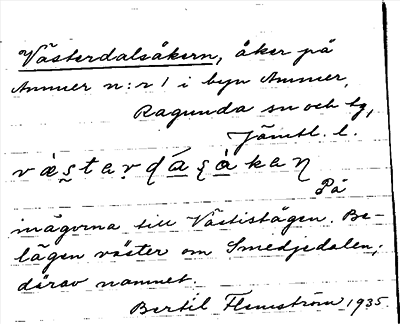 Västerdalsåkern, åker på
Ammer n:r 1 i byn Ammer,
Ragunda sn och tg,
Jämtl. l.
På
inägorna till Västistägen. Be-
lägen väster om Smedjedalen;
därav namnet.
Bertil Flemström 1935